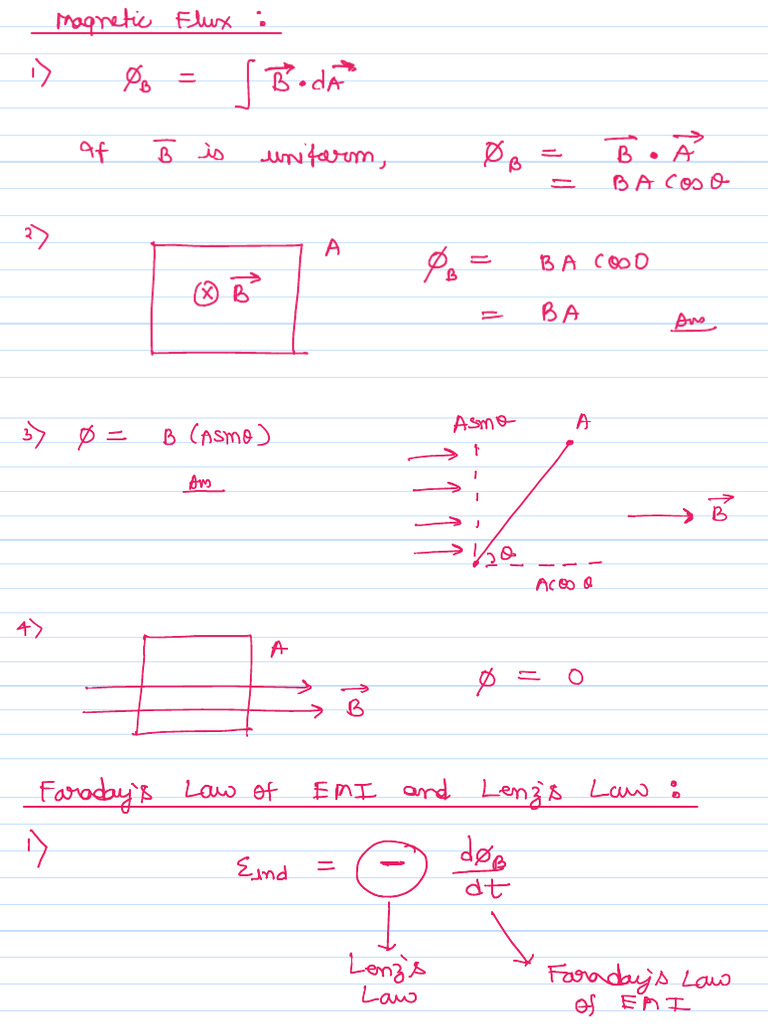 Magnetic Flux :
1) ∅B = ∫ B⃗ . dA⃗
If B̅ is uniform, ∅B = B⃗ . A⃗
= BA cosθ
2) A
⊗ B⃗
∅B = BA cos0
= BA Ans
3) ∅ = B (Asinθ)
Ans
Asinθ A
B⃗
θ
Acosθ
4) A
B⃗
∅ = 0
Faraday's Law of EMI and Lenz's Law :
1) Ɛind = − d∅B/dt
Lenz's Law
Faraday's Law of EMI